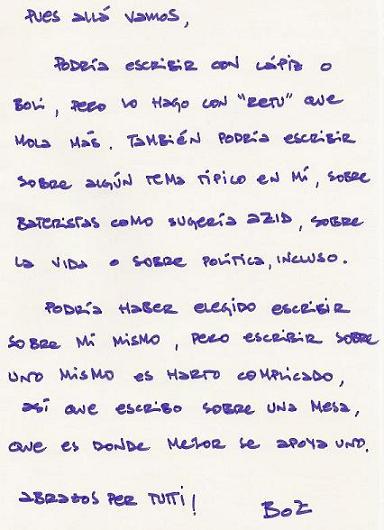 Pues allá vamos,
Podría escribir con lápiz o
boli, pero lo hago con "retu" que
mola más. También podría escribir
sobre algún tema típico en mí, sobre
bateristas como sugería Azid, sobre
la vida o sobre política, incluso.
Podría haber elegido escribir
sobre mí mismo, pero escribir sobre
uno mismo es harto complicado,
así que escribo sobre una mesa,
que es donde mejor se apoya uno.
Abrazos per tutti!
Boz